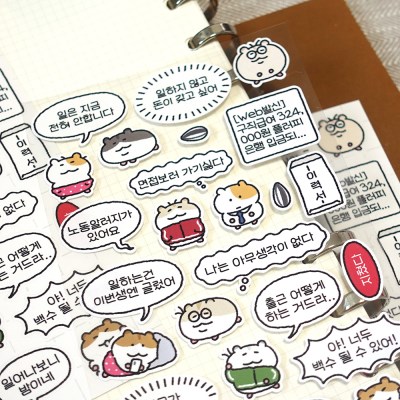 일은 지금
전혀 안합니다
일하지 않고
돈이 갖고 싶어
[Web발신]
구직급여 324,
000원 플러피
은행 입금되...
이력서
면접보러 가기싫다
노동알러지가
있어요
나는 아무생각이 없다
일하는건
이번생엔 글렀어
출근 어떻게
하는 거드라..
야! 너두
백수 될 수 있어!
[Web발신]
구직급여 324,
000원 플러피
은행 입금되...
이력서
없다
어떻게
거드라..
야! 너두
백수 될 수
일어나보니
밤이네
야! 너두
백수 될 수 있어!